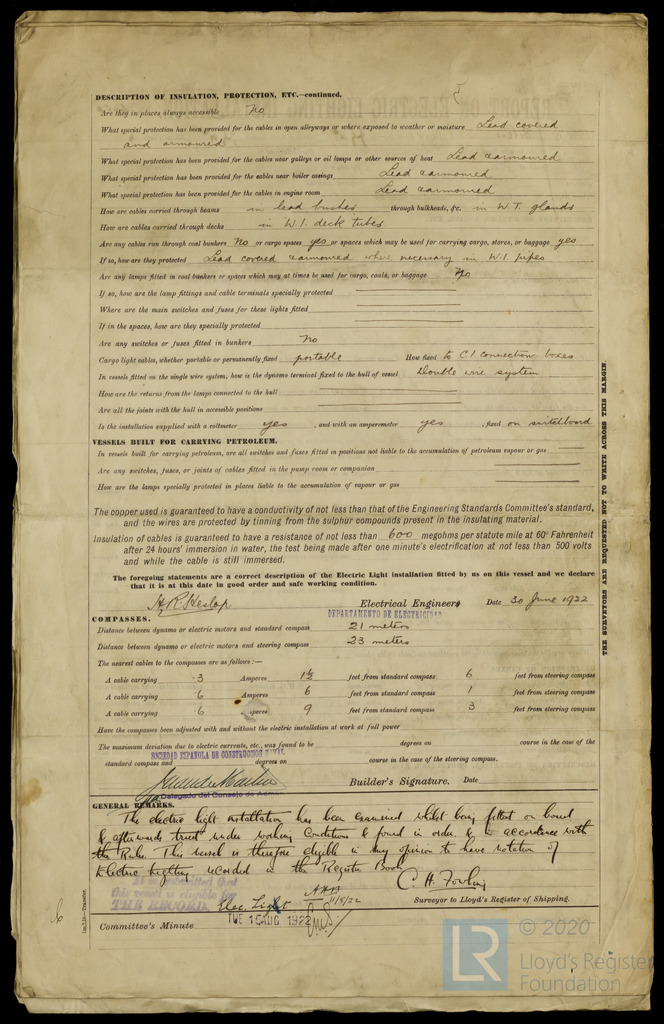 DESCRIPTION OF INSULATION, PROTECTION, ETC.—continued.
Are they in places always accessible No
What special protection has been provided for the cables in open alleyways or where exposed to weather or moisture Lead covered
and armoured
What special protection has been provided for the cables near galleys or oil lamps or other sources of heat Lead & armoured
What special protection has been provided for the cables near boiler casings Lead & armoured
What special protection has been provided for the cables in engine room Lead & armoured
How are cables carried through beams in lead bushes through bulkheads, &c. in W.T. glands
How are cables carried through decks in W.I. deck tubes
Are any cables run through coal bunkers No or cargo spaces yes or spaces which may be used for carrying cargo, stores, or baggage yes
If so, how are they protected Lead covered & armoured where necessary in W.I. pipes
Are any lamps fitted in coal bunkers or spaces which may at times be used for cargo, coals, or baggage No
If so, how are the lamp fittings and cable terminals specially protected
Where are the main switches and fuses for these lights fitted
If in the spaces, how are they specially protected
Are any switches or fuses fitted in bunkers No
Cargo light cables, whether portable or permanently fixed portable How fixed to C.I. connection boxes
In vessels fitted on the single wire system, how is the dynamo terminal fixed to the hull of vessel Double wire system
How are the returns from the lamps connected to the hull
Are all the joints with the hull in accessible positions
Is the installation supplied with a voltmeter yes , and with an amperemeter yes , fixed on switchboard
VESSELS BUILT FOR CARRYING PETROLEUM.
In vessels built for carrying petroleum, are all switches and fuses fitted in positions not liable to the accumulation of petroleum vapour or gas
Are any switches, fuses, or joints of cables fitted in the pump room or companion
How are the lamps specially protected in places liable to the accumulation of vapour or gas
The copper used is guaranteed to have a conductivity of not less than that of the Engineering Standards Committee's standard,
and the wires are protected by tinning from the sulphur compounds present in the insulating material.
Insulation of cables is guaranteed to have a resistance of not less than 600 megohms per statute mile at 60° Fahrenheit
after 24 hours' immersion in water, the test being made after one minute's electrification at not less than 500 volts
and while the cable is still immersed.
The foregoing statements are a correct description of the Electric Light installation fitted by us on this vessel and we declare
that it is at this date in good order and safe working condition.
H.R. Heslop Electrical Engineers Date 30 June 1922
DEPARTAMENTO DE ELECTRICIDAD
COMPASSES.
Distance between dynamo or electric motors and standard compass 21 meters
Distance between dynamo or electric motors and steering compass 23 meters
The nearest cables to the compasses are as follows:—
A cable carrying 3 Amperes 1½ feet from standard compass 6 feet from steering compass
A cable carrying 6 Amperes 6 feet from standard compass 1 feet from steering compass
A cable carrying 6 Amperes 9 feet from standard compass 3 feet from steering compass
Have the compasses been adjusted with and without the electric installation at work at full power
The maximum deviation due to electric currents, etc., was found to be degrees on course in the case of the
standard compass and degrees on course in the case of the steering compass.
SOCIEDAD ESPAÑOLA DE CONSTRUCCION NAVAL
Builder's Signature. Date
Delegado del Consejo de Admon.
GENERAL REMARKS.
The electric light installation has been examined whilst being fitted on board
& afterwards tried under working conditions & found in order & in accordance with
the Rules. This vessel is therefore eligible in my opinion to have notation of
Electric lighting recorded in the Register Book.
It is submitted that
this vessel is eligible for
THE RECORD. Elec. Light
11/8/22
C. H. Fowling
Surveyor to Lloyd's Register of Shipping.
Committee's Minute TUE 15 AUG 1922
THE SURVEYORS ARE REQUESTED NOT TO WRITE ACROSS THIS MARGIN.
LR
© 2020
Lloyd's Register
Foundation